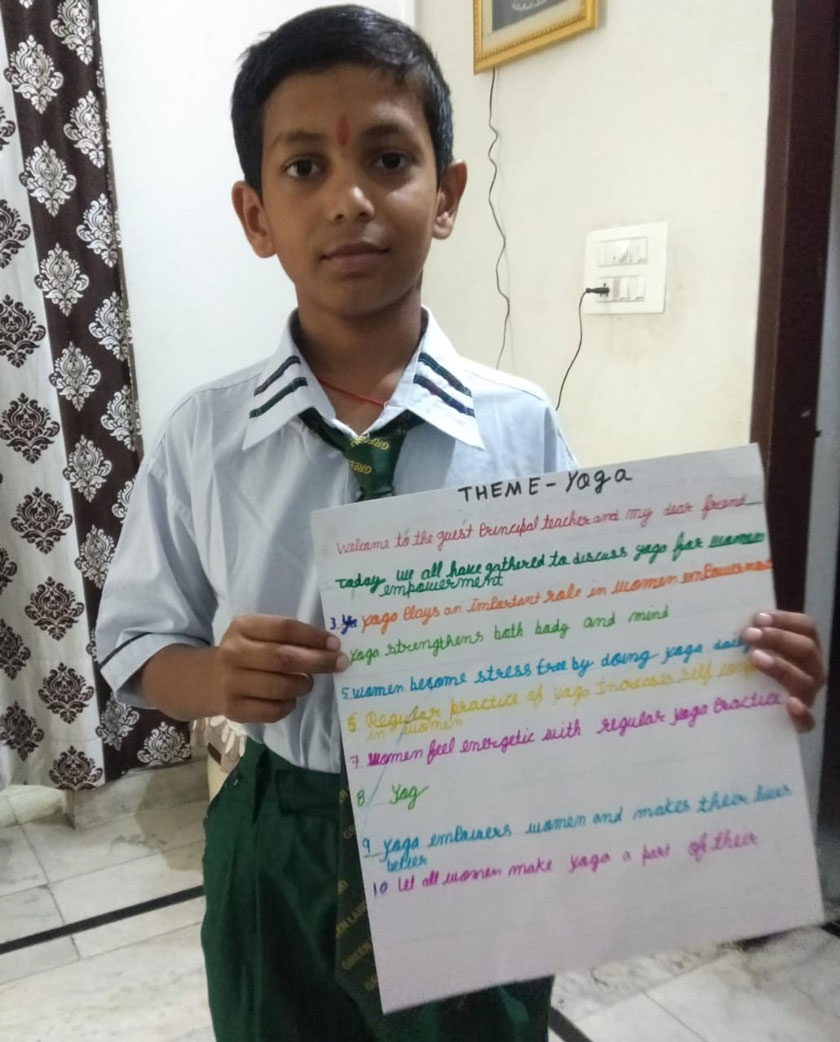 THEME - Yoga
Welcome to the guest Principal teacher and my dear friend
Today we all have gathered to discuss yoga for women
empowerment
3 Yoga Plays an important role in women empowerment
Yoga strengthens both body and mind
5 women become stress free by doing yoga daily
6 Regular practice of yoga Increases self
in women
7 women feel energetic with regular yoga Practice
8 Yog
9 yoga empowers women and makes their lives
better
10 let all women make yoga a part of their
GREEN
GREEN